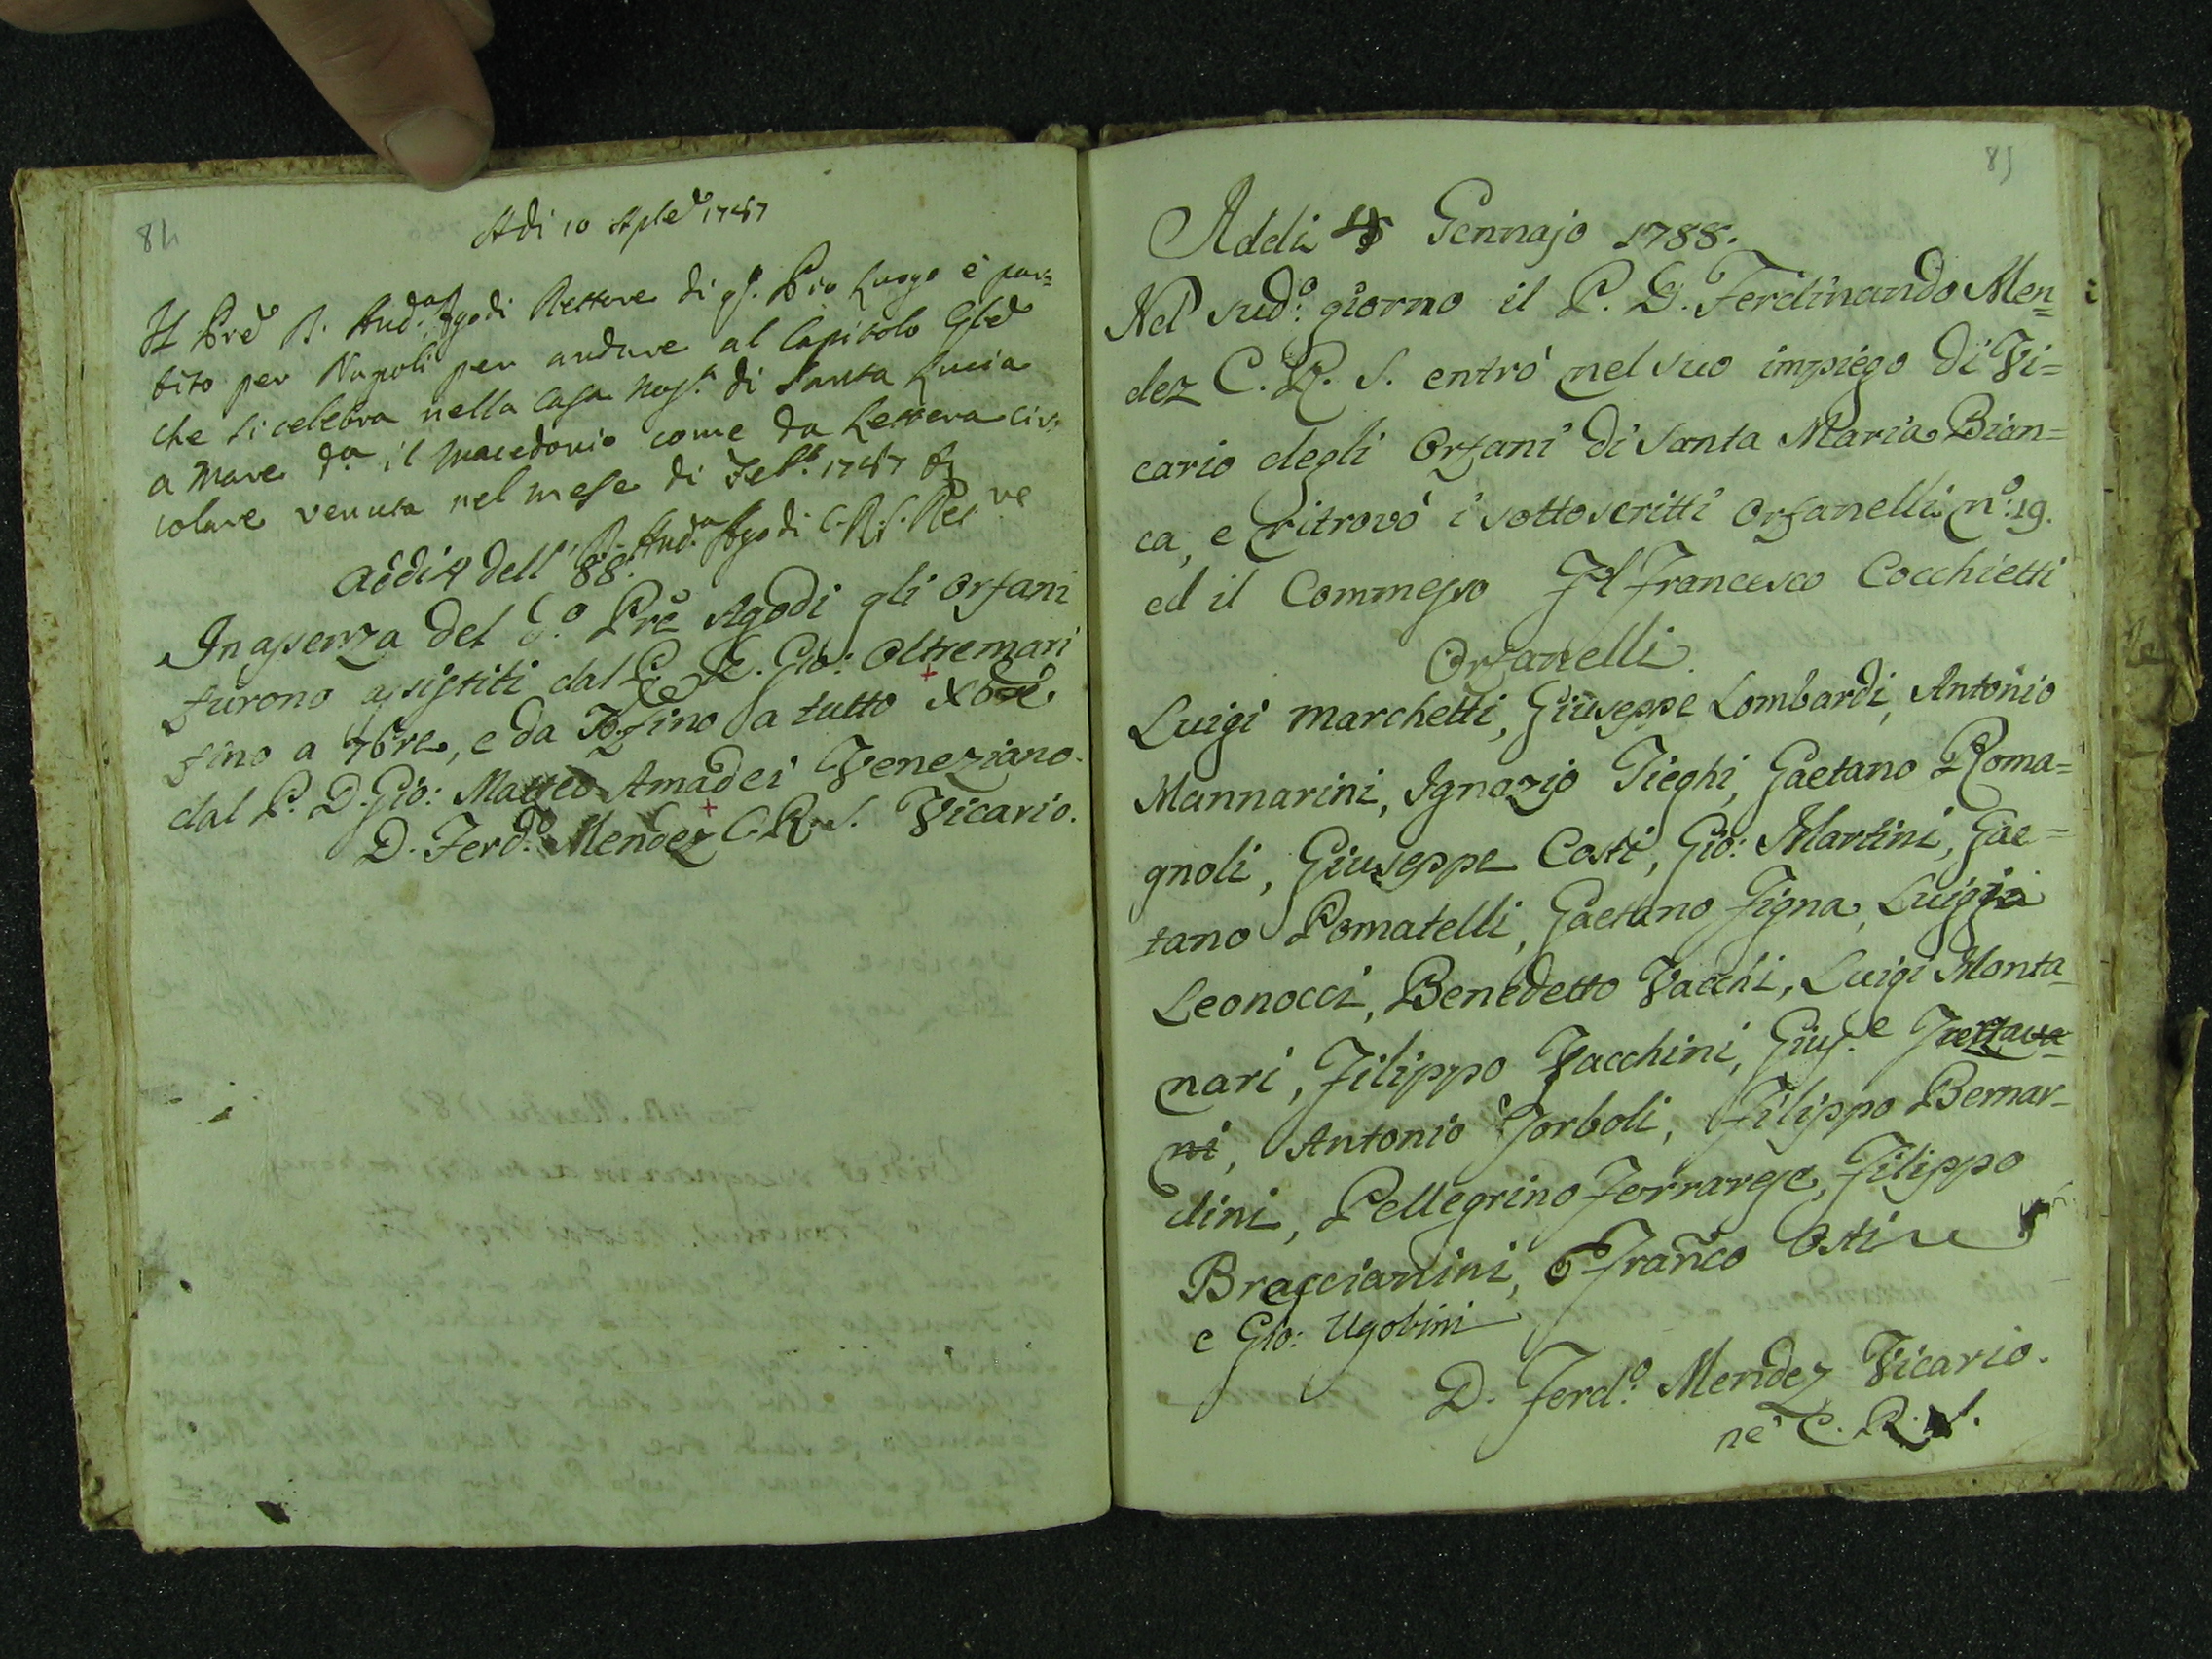 84
Adi 10 Aple 1787
Il Pre D. And.a Agodi Rettore di qs. Pio Luogo è par=
tito per Napoli per andare al Capitolo Gle
che si celebra nella Casa nos.a di Santa Lucia
a Mare d.a il Macedonio come da Lettera cir=
colare venuta nel mese di Feb.o 1787
D. And.a Agodi C.R.S. Ret re
addi 4 dell' 88.
In assenza del d.o Pre Agodi gli Orfani
furono assistiti dal P. D. Gio: Oltremari
fino a 7bre, e da 7b fino a tutto Xbre
dal P. D. Gio: Matteo Amadei Veneziano.
D. Ferd.o Mendez C.R.S. Vicario.
85
Addi 4 Gennajo 1788.
Nel sud.o giorno il P. D. Ferdinando Men=
dez C. R. S. entrò nel suo impiego di Vi=
cario degli Orfani di Santa Maria Bian=
ca, e ritrovò i sottoscritti Orfanelli n.o 19.
ed il Commesso Fl Francesco Cocchietti
Orfanelli.
Luigi Marchetti, Giuseppe Lombardi, Antonio
Mannarini, Ignazio Tieghi, Gaetano Roma=
gnoli, Giuseppe Costi, Gio: Martini, Gae=
tano Pomatelli, Gaetano Figna, Luigi
Leonocci, Benedetto Vacchi, Luigi Monta=
nari, Filippo Vacchini, Gius.e
ni, Antonio Jorboli, Filippo Bernar=
dini, Pellegrino Ferrarese, Filippo
Braccianini, Franco Osti
e Gio: Ugobini
D. Ferd.o Mendez Vicario.
ne' C. R. S.